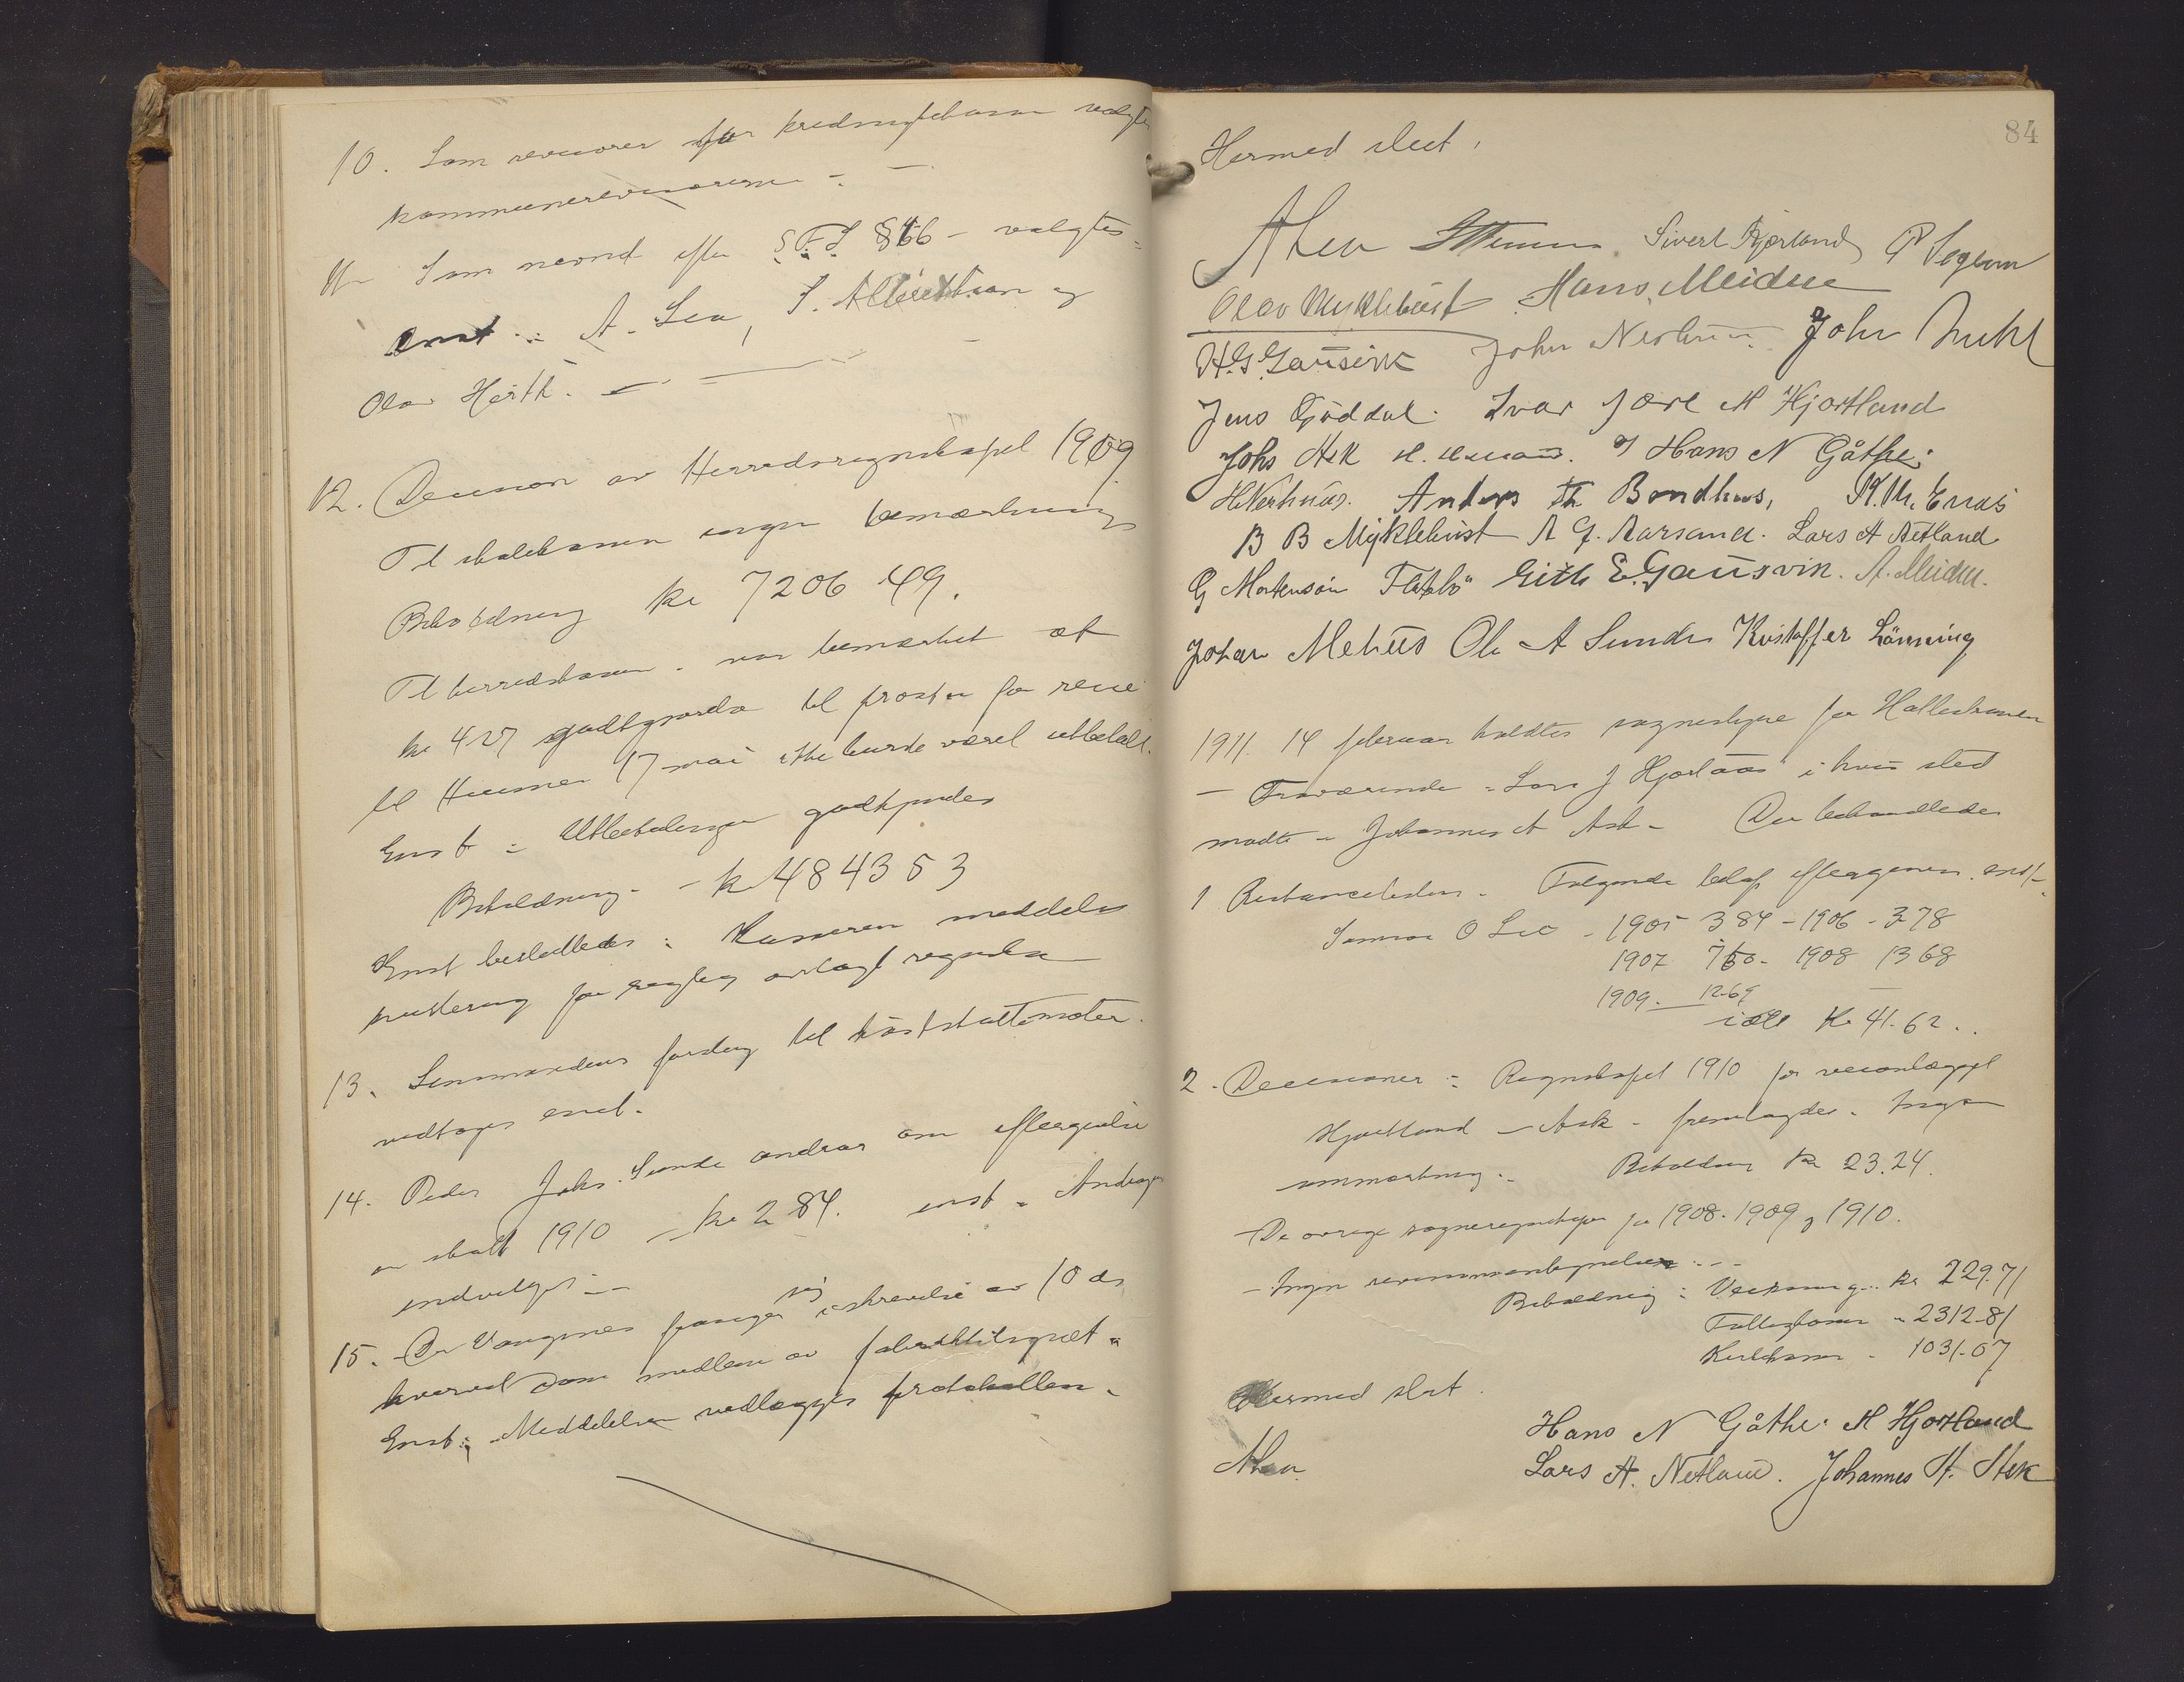 10. Som revisorer for kredssykekassen valgtes
kommunerevisorerne -. -
11 - Som nevnd efter S.F.L. § 66 - valgtes -
enst.: A. Lea, S. Albrektson og
Olav Hørth. -
12. Decision av Herredsregnskapet 1909
Til skolekassen ingen bemærkning
Beholdning kr 7206 49.
Til herredskassen - var bemærket at
kr 4 27 godtgjorde til prosten for reise
til Husnes 17 mai ikke burde været utbetalt.
Enst: Utbetalingen godkjendes
Beholdning - - kr 4843 53
Enst besluttedes: Kassereren meddeles
kvittering for rigtig avlagt regnskap
13. Lensmandens forslag til høstskattemøter
vedtages enst.
14. Peder Johs. Sunde andrar om eftergivelse
av skatt 1910 - kr 2 84. enst - Andragendet
indvilges -
15. De Vangsnes frasiger sig i skrivelse av 10 ds
hvervet som medlem av fabriktilsynet -
Enst: Meddelelsen vedlægges protokollen -
84
Hermed slut.
A Lea Sivert Kjærland
Olav Myklebust Hans Meidell
H. G. Gausvik John Nerhus John
Jens Goddal. Ivar Jære M Hjortland
Johs Ask Hans N Gåthe.
H Nerhus. Anders Th Bondhus, M. M. Enæs
B B Myklebust A G. Aarsand. Lars A Netland
G Mortensøn Flatebø Gitle E. Gausvik. A. Meidell.
Johan Mehus Ole A Sunde Kristoffer Lønning
1911. 14 februar holdtes sognestyre for Holledsoknen
- Fraværende - Lars J Hjortaas i hvis sted
mødte - Johannes A Ask - Der behandledes
1 Restanselisten - Følgende beløp eftergives enst -
O Lie - 1905 3 84 - 1906 - 3 78
1907 7 60 - 1908 13 68
1909 - 12-69
ialt Kr 41. 62..
2 - Decisioner - Regnskapet 1910 for veianlægget
Hjortland - Ask - fremlagdes. Ingen
anmerkning.- Beholdning kr 23.24.
- De øvrige sogneregnskaper for 1908. 1909 og 1910.
- Ingen revisionsantegnelser - -
Beholdning: kr 229.71
Fattigkassen " 2312-81
Kirkekassen - 1031-07
Hermed slut.
Hans N Gåthe. M Hjortland
A Lea Lars A. Netland. Johannes A. Ask